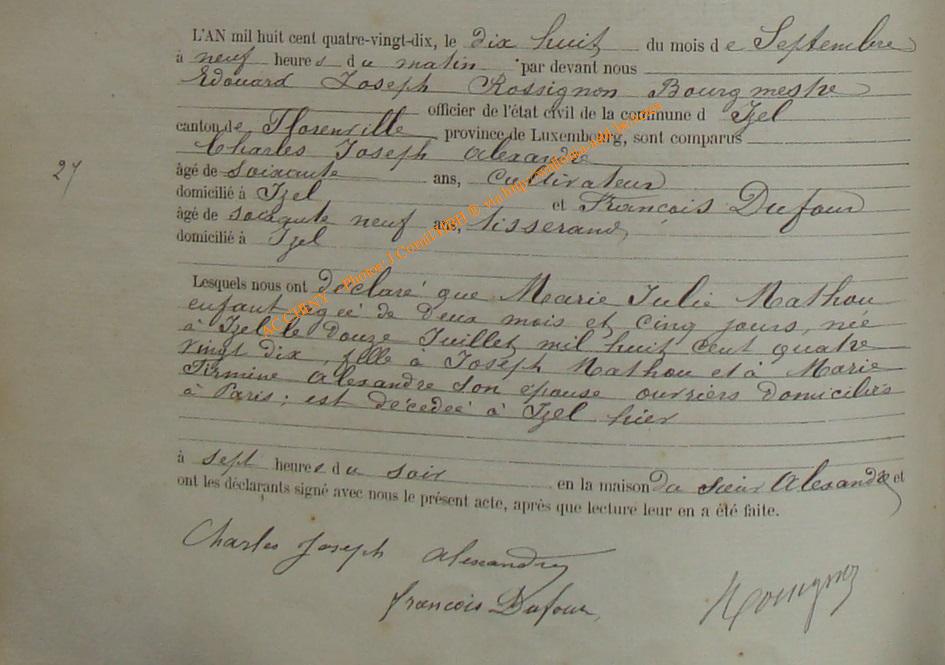 L'AN mil huit cent quatre-vingt-dix, le dix huit du mois de Septembre
à neuf heures du matin par devant nous
Edouard Joseph Rossignon Bourgmestre
officier de l'état civil de la commune d Izel
canton de Florenville province de Luxembourg, sont comparus
Charles Joseph Alexandre
27
âgé de soixante ans, cultivateur
domicilié à Izel et François Dufour
âgé de soixante neuf ans, tisserand,
domicilié à Izel
Lesquels nous ont déclaré que Marie Julie Mathou
enfant agée de deux mois et cinq jours, née
à Izel le douze Juillet mil huit cent quatre
vingt dix, fille à Joseph Mathou et à Marie
Firmine Alexandre son épouse ouvriers domiciliés
à Paris; est décedée à Izel hier
à sept heures du soir en la maison du sieur Alexandre et
ont les déclarants signé avec nous le présent acte, après que lecture leur en a été faite.
Charles Joseph Alexandre
françois Dufour
Rossignon
ACCHENY - Photos J.Comt HBH ® via http